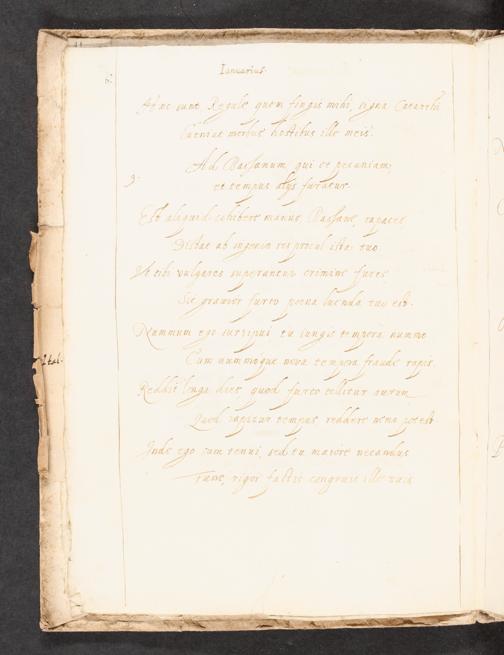 Ianuarius.
At ne sunt Regule quem fingis mihi, signa Catarrhi
morbus hostibus ille meis.
9.
Ad Bassanum, qui et pecuniam,
et tempus alijs furatur.
Est aliquid cohibere manus, Bassane, rapaces
Distat ab ingenio res procul ista tuo
Ut tibi vulgares superantur crimine fures
Sic gravior furto poena luenda tuo est.
Nummum ego surripui, tu iungis tempora nummo
Cum nummoque nova tempora fraude rapis.
Reddit longa dies, quod furto tollitur aurum
Quod rapitur tempus reddere nemo potest.
Inde ego sum tenui, sed tu maiore necandus
Fune, rigor factis congruit ille tuis
Ital.